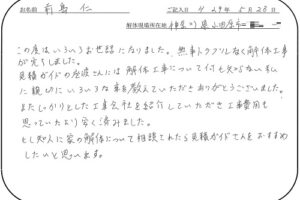 お名前 前島 仁 ご記入日 H29年5月28日
解体現場所在地 神奈川県小田原市
この度はいろいろお世話になりました。無事トラブルなく解体工事
が完了しました。
見積ガイドの 渡波さんには 解体工事について何も知らない私
に親切にいろいろな事を教えていただきありがとうございました。
またしっかりとした工事会社を紹介していただき工事費用も
思っていたより安く済みました。
もし知人に家の解体について相談されたら見積ガイドさんをおすすめ
したいと思います。